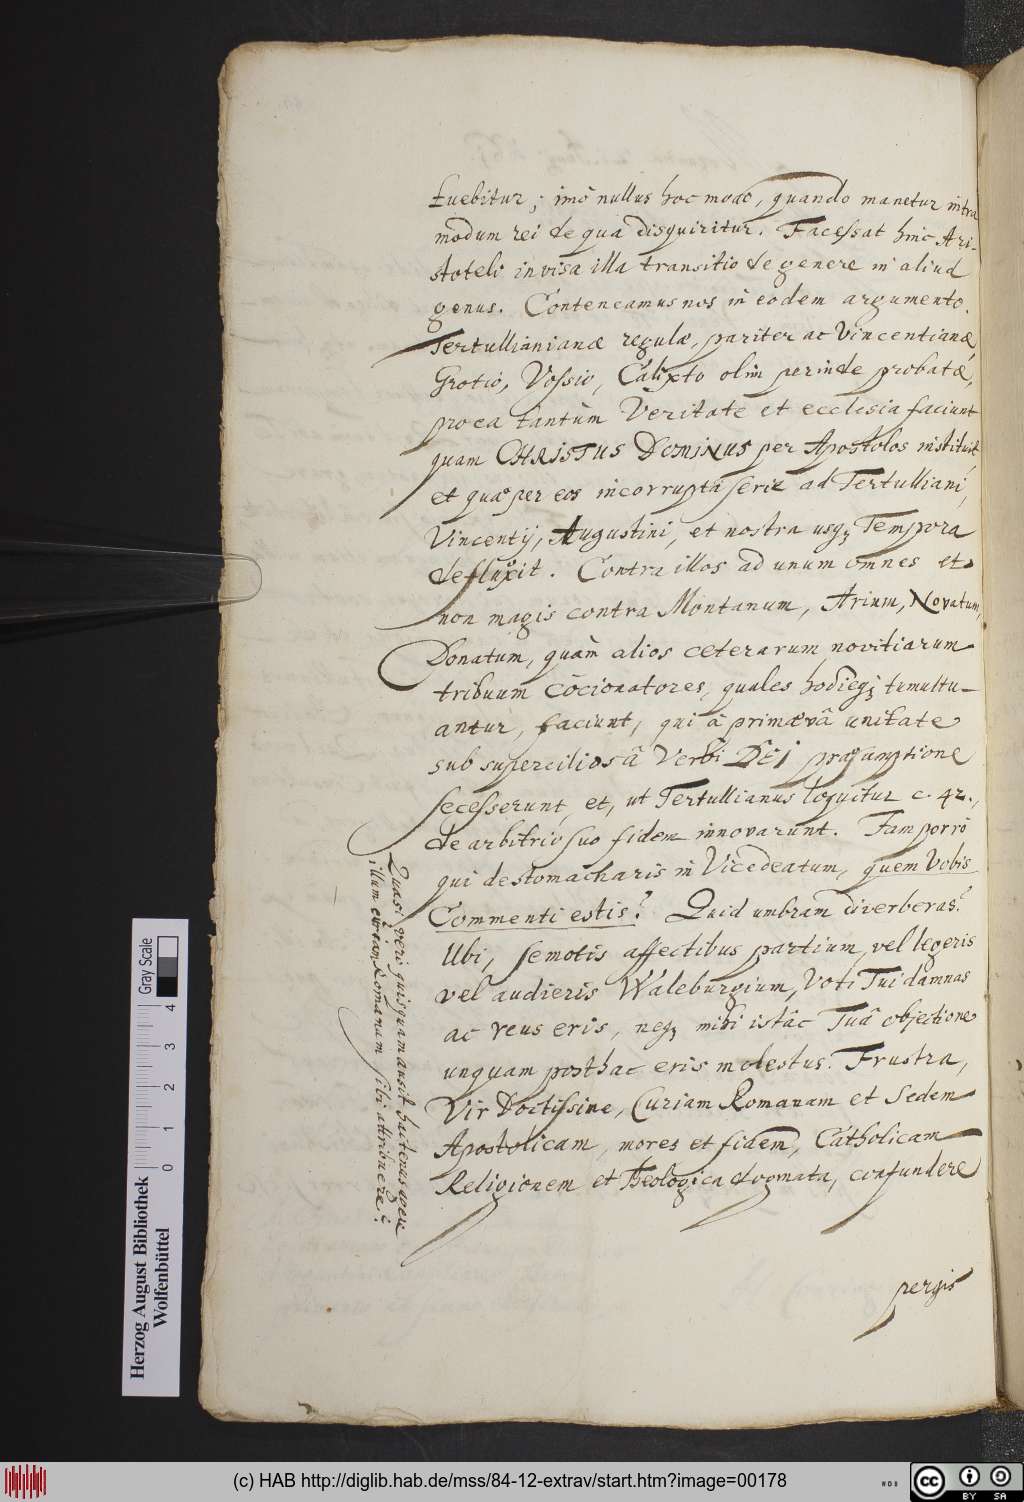 tuebitur; imò nullus hoc modo, quando manetur intra
modum rei de qua disquiritur. Facessat hinc Ari-
stoteli invisa illa transitio de genere in aliud
genus. Conteneamus nos in eodem argumento.
Tertullianianæ regulæ, pariter ac Vincentianæ
Grotio, Vossio, Calixto olim perinde probatæ,
pro ea tantùm Veritate et ecclesia faciunt
quam CHRISTUS DOMINUS per Apostolos instituit
et quæ per eos incorruptâ serie ad Tertulliani,
Vincentij, Augustini, et nostra usq; Tempora
defluxit. Contra illos ad unum omnes et
non magis contra Montanum, Arium, Novatum,
Donatum, quàm alios ceterarum novitiarum
tribuum cōcionatores, quales hodieq; tumultu-
antur, faciunt, qui à primævâ unitate
sub superciliosâ Verbi DEI præsumptione
secesserunt, et, ut Tertullianus loquitur c. 42.,
de arbitrio suo fidem innovarunt. Jam porrò
qui destomacharis in Vicedeatum, quem Vobis
Commenti estis? Quid umbram diverberas?
Ubi, semotis affectibus partium, vel legeris
vel audieris Waleburgium, Voti Tui damnas
ac reus eris, neq; mihi istâc Tuâ objectione
unquam posthac eris molestus. Frustra,
Vir Doctissime, Curiam Romanam et Sedem
Apostolicam, mores et fidem, Catholicam
Religionem et Theologica dogmata, confundere
pergis
Quasi verò quisquam ausit hactenus
illum Romanum sibi attribuere?
Herzog August Bibliothek
Wolfenbüttel
0 1 2 3 4
Gray Scale
(c) HAB http://diglib.hab.de/mss/84-12-extrav/start.htm?image=00178
cc BY SA